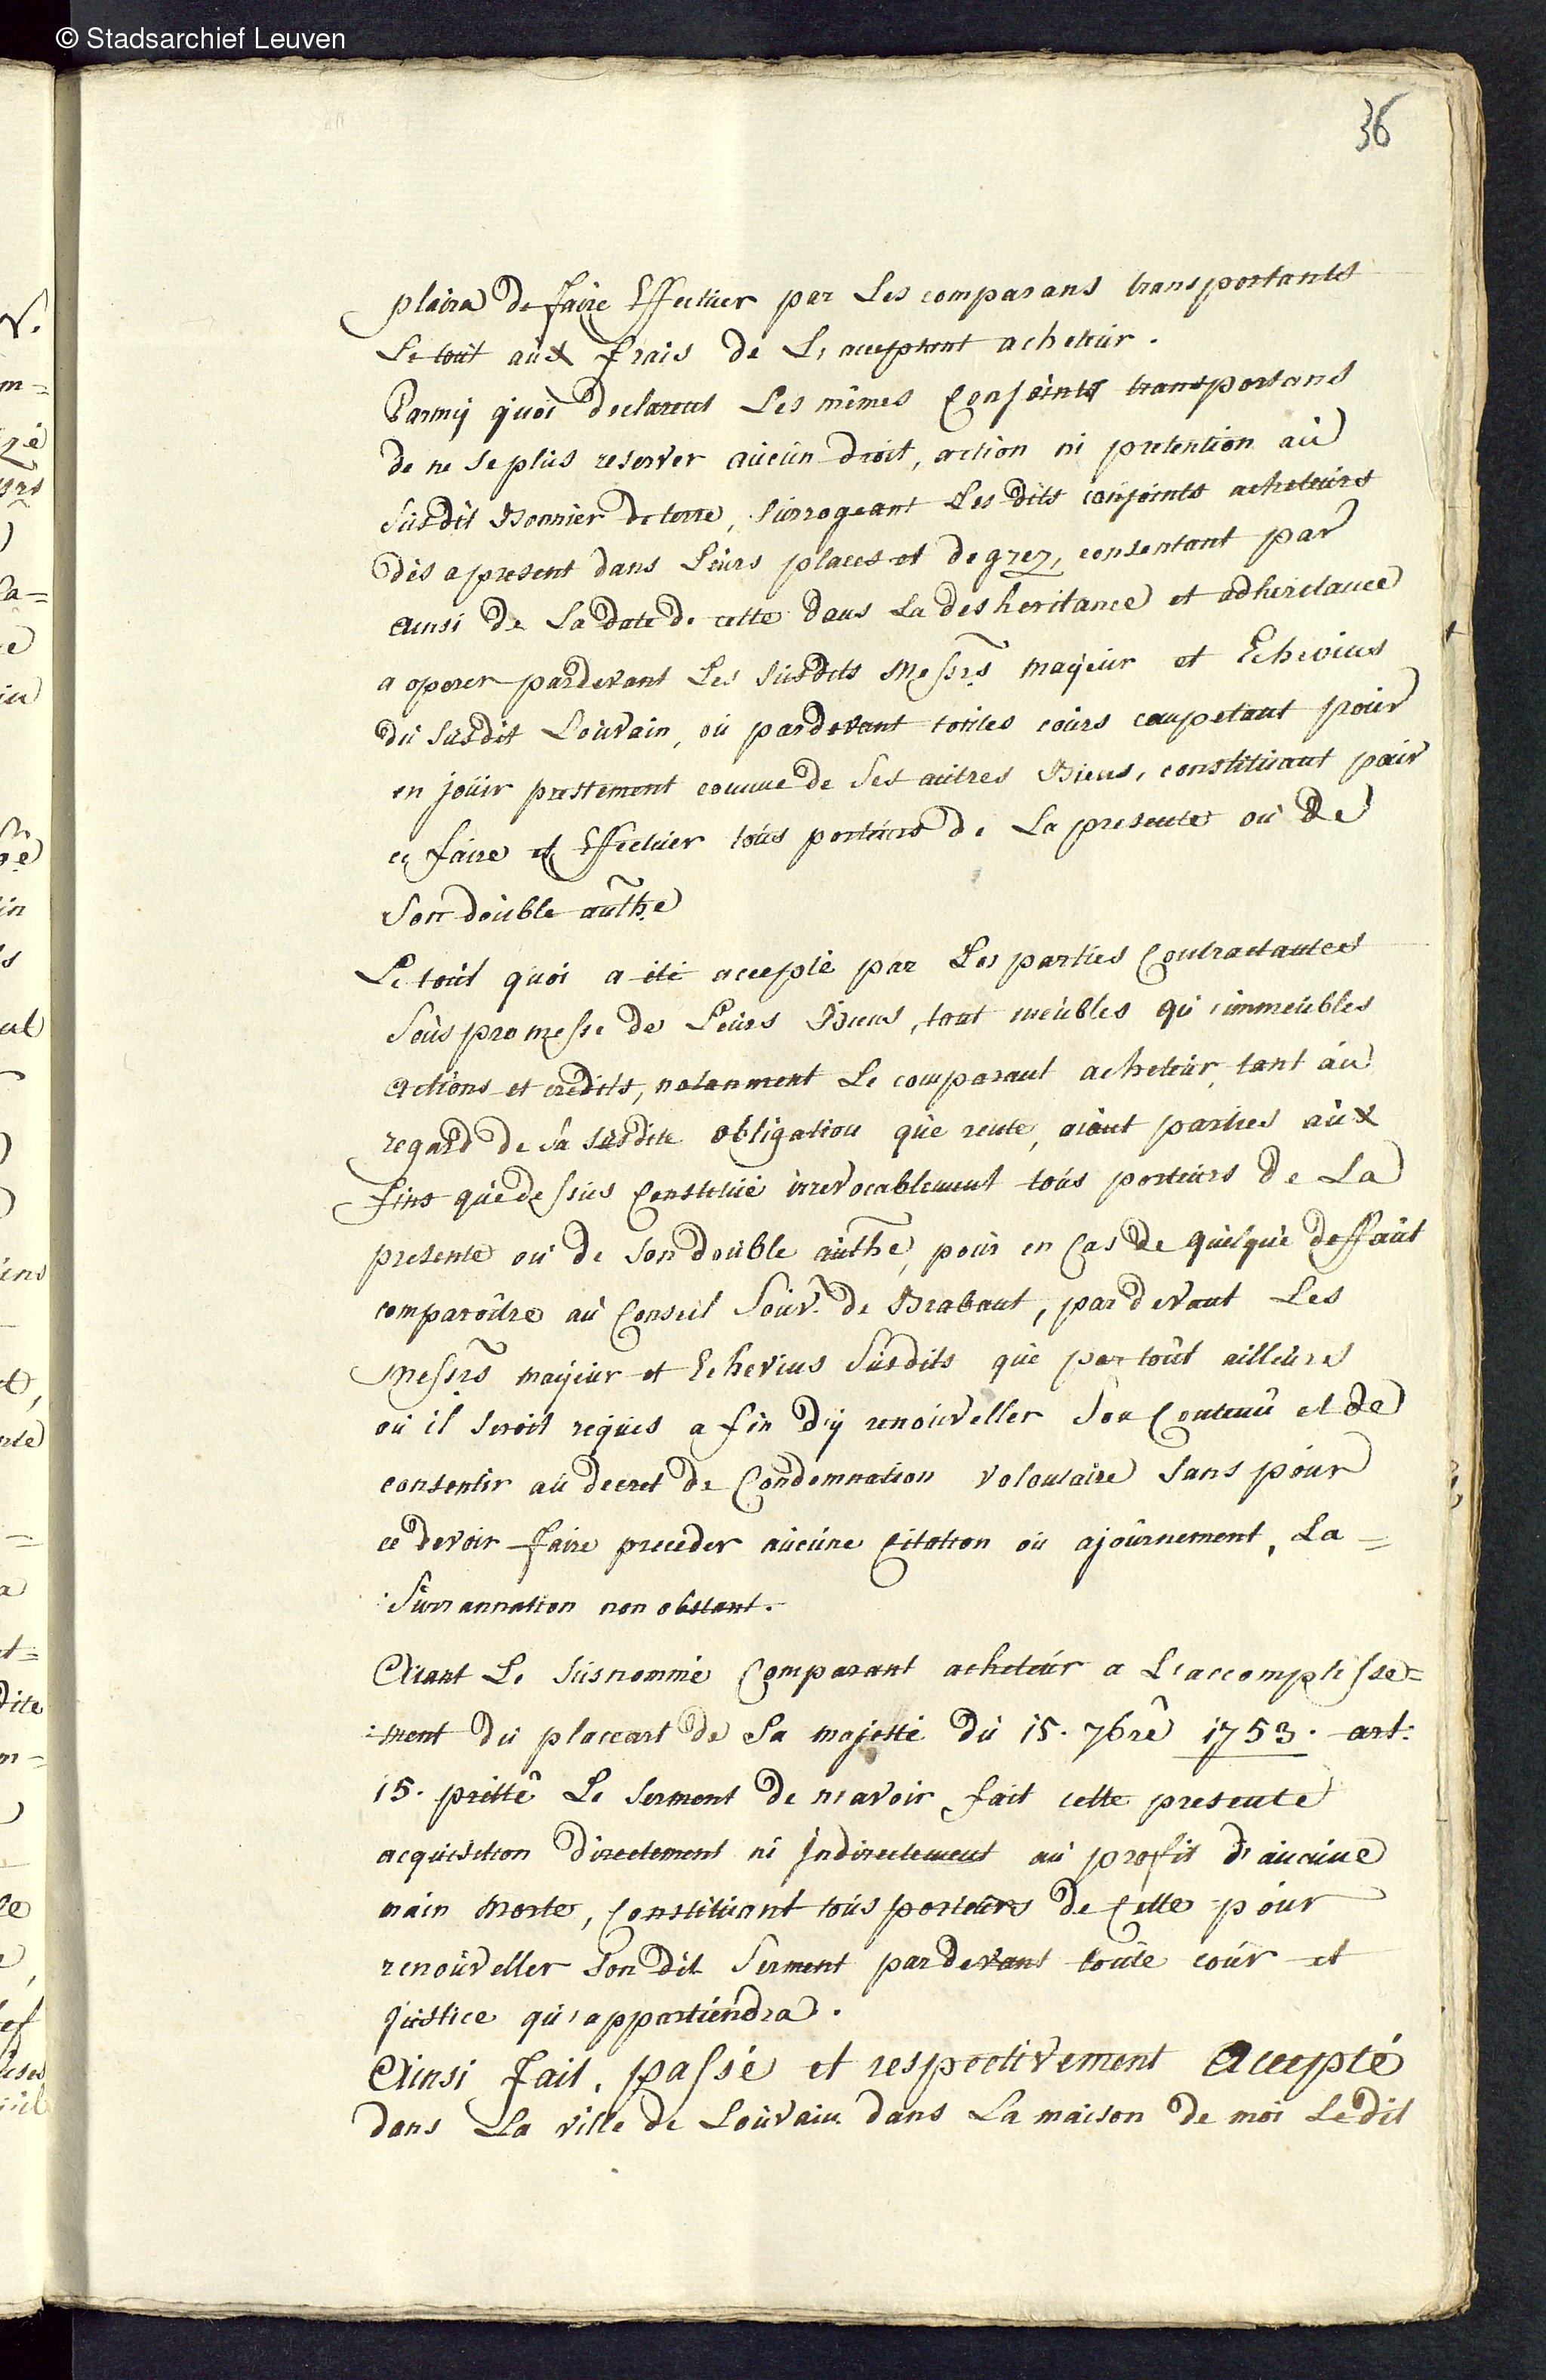 © Stadsarchief Leuven
36
plaira de faire Effectuer par Les comparans transportants
Le tout aux frais de L'acceptant acheteur.
Parmÿ quoi declarent Les mêmes Conjoints transportans
de ne se plus reserver aucun droit, action ni pretention au
susdit Bonnier de terre, surrogeant Les dits conjoints acheteurs
dès apresent dans Leurs places et degrez, consentant par
ainsi de La date de cette dans La desheritance et adheritance
a operer pardevant Les susdits Messrs mayeur et Echevins
du susdit Louvain, ou pardevant toutes cours competant pour
en jouir prestement comme de ses autres Biens, constituant pour
ce faire et Effectuer tous porteurs de La presente ou de
son double authe
Le tout quoi a été accepté par Les parties Contractantes
sous promesse de Leurs Biens, tant meubles qu'immeubles
actions et credits, notamment Le comparant acheteur, tant au
regard de sa susdite obligation que rente, aiant parties aux
fins que dessus Constitué irrevocablement tous porteurs de La
presente ou de son double authe, pour en Cas de quelque deffaut
comparoître au Conseil Souv. de Brabant, pardevant Les
Messrs mayeur et Echevins susdits que par tout ailleurs
ou il seroit requis a fin d'ÿ renouveller son Contenu et de
consentir au decret de Condemnation volontaire sans pour
ce devoir faire preceder aucune Citation ou ajournement, La =
: surrannation non obstant.
Aiant Le susnommé Comparant acheteur a L'accomplisse=
:ment du placcart de Sa majesté du 15. 7bre 1753. art:
15. pretté Le serment de n'avoir fait cette presente
acquisition directement ni Indirectement au profit d'aucune
main Morte, Constituant tous porteurs de Cette pour
renouveller son dit serment pardevant toute cour et
justice qu'appartiendra.
Ainsi fait, passé et respectivement accepté
dans La ville de Louvain dans La maison de moi Ledit